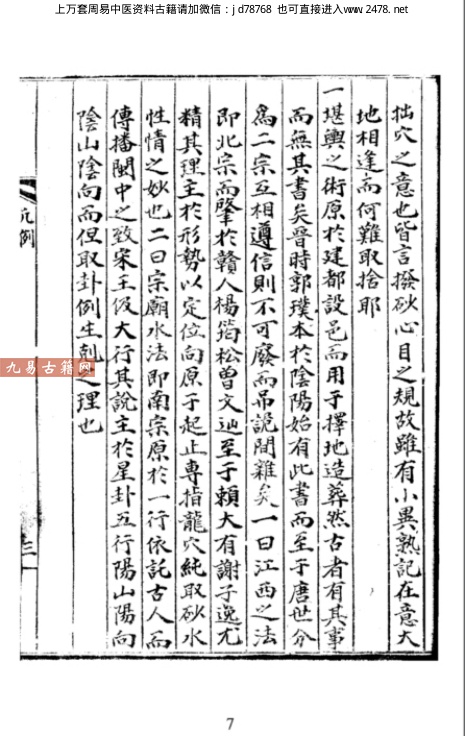 上万套周易中医资料古籍请加微信：jd78768 也可直接进入www.2478.net
拙穴之意也皆言撥砂心目之規故雖有小異熟記在意大
地相逢而何難取捨耶
一堪輿之術原於建都設邑而用于擇地造葬然古者有其事
而無其書矣晉時郭璞本於陰陽始有此書而至于唐世分
爲二宗互相遵信則不可廢而吊詭間雜矣一曰江西之法
即北宗而肇於贛人楊筠松曾文辿至于賴大有謝子逸尤
精其理主於形勢以定位向原于起止專指龍穴純取砂水
性情之妙也二曰宗廟水法即南宗原於一行依託古人而
傳播閩中之致宋王伋大行其說主於星卦五行陽山陽向
陰山陰向而但取卦例生剋之理也
凡例
三
九易古籍网
7